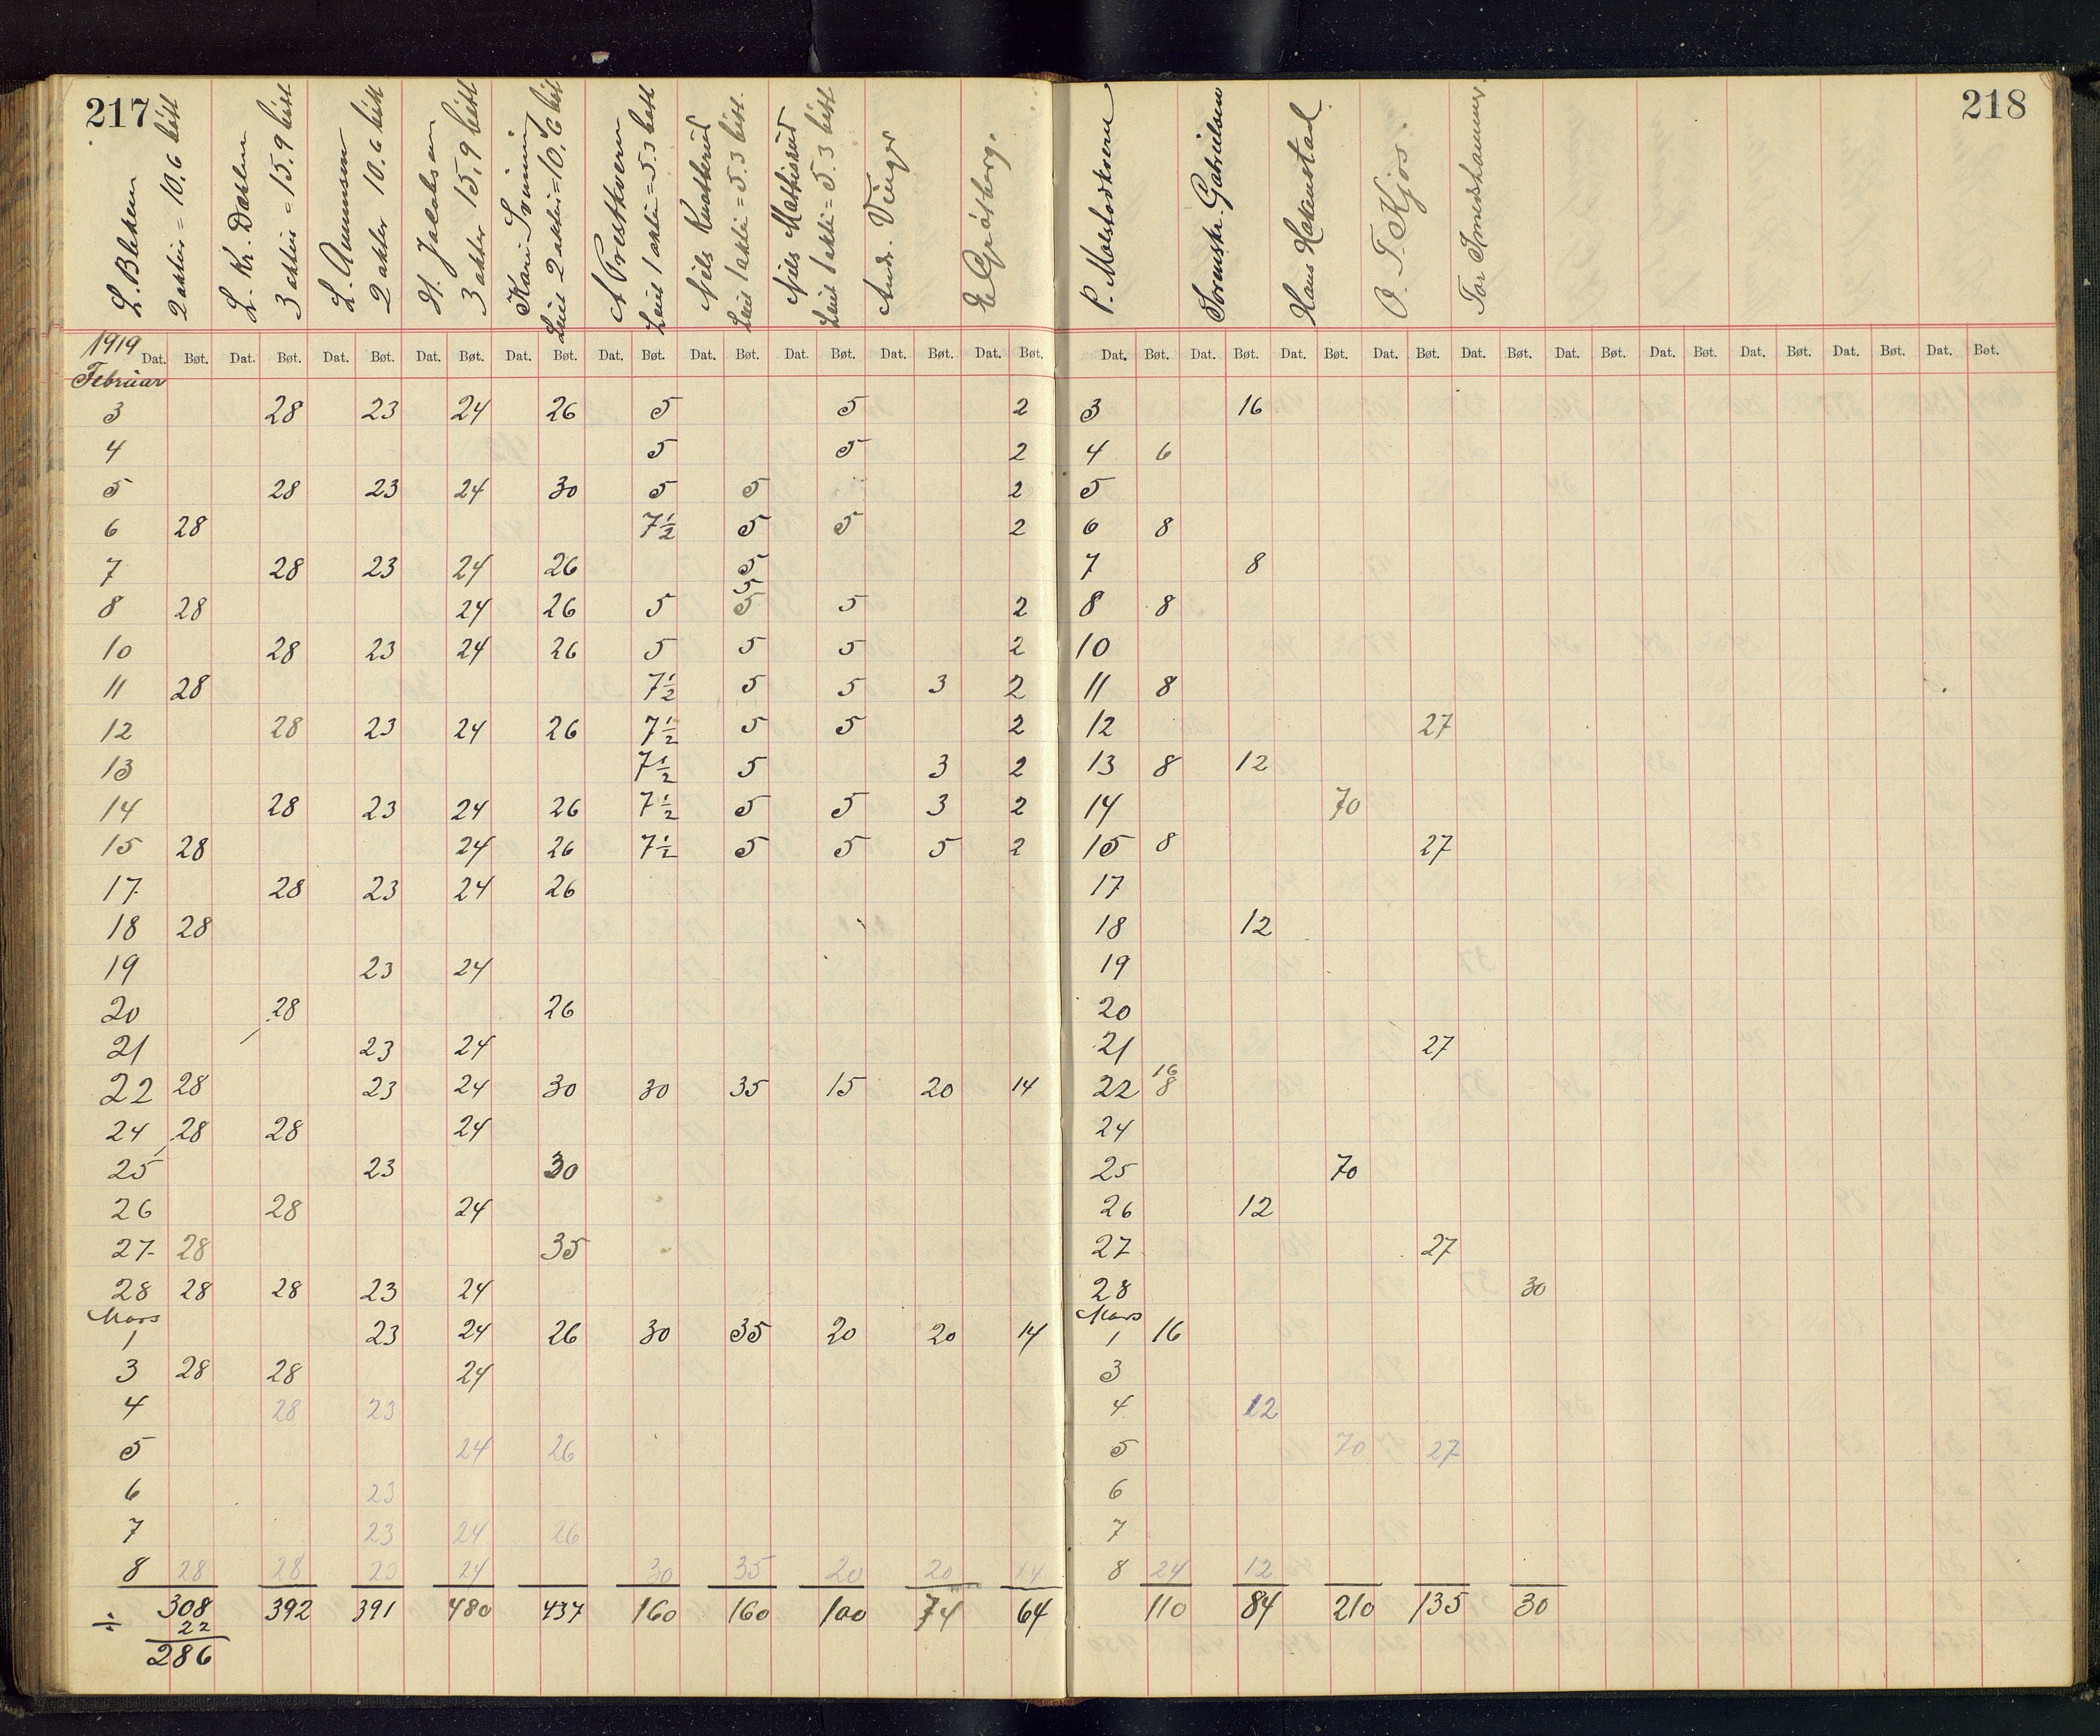 217
218
L. Bleken
2 aktier = 10.6 bøtt
L. Kr. Dæhlen
3 aktier = 15.9 bøtt
L. Amunsen
2 aktier 10.6 bøtt
H. Jacobsen
3 aktier 15.9 bøtt
Kari Svenning
Leiet 2 aktier = 10.6 bøtt
A Prestkvern
Leiet 1 aktie = 5.3 bøtt
Nels Knatterud
Leiet 1 aktie = 5.3 bøtt
Nils Mathisrud
Leiet 1 aktie = 5.3 bøtt
Andr. Vinger
E Grøtberg.
P. Molstadkvern
Sorenskr. Gabrielsen
Hans Hakenstad
O. T. Kjos.
Tor Smedshammer
1919
Dat. Bøt. Dat. Bøt. Dat. Bøt. Dat. Bøt. Dat. Bøt. Dat. Bøt. Dat. Bøt. Dat. Bøt. Dat. Bøt. Dat. Bøt. Dat. Bøt. Dat. Bøt. Dat. Bøt. Dat. Bøt. Dat. Bøt. Dat. Bøt. Dat. Bøt. Dat. Bøt. Dat. Bøt. Dat. Bøt.
Februar
3 28 23 24 26 5 5 2 3 16
4 5 5 2 4 6
5 28 23 24 30 5 5 2 5
6 28 7½ 5 5 2 6 8
7 28 23 24 26 5 7 8
5
8 28 24 26 5 5 5 2 8 8
10 28 23 24 26 5 5 5 2 10
11 28 7½ 5 5 3 2 11 8
12 28 23 24 26 7½ 5 5 2 12 27
13 7½ 5 3 2 13 8 12
14 28 23 24 26 7½ 5 5 3 2 14 70
15 28 24 26 7½ 5 5 5 2 15 8 27
17 28 23 24 26 17
18 28 18 12
19 23 24 19
20 28 26 20
21 23 24 21 27
16
22 28 23 24 30 30 35 15 20 14 22 8
24 28 28 24 24
25 23 30 25 70
26 28 24 26 12
27 28 35 27 27
28 28 28 23 24 28 30
Mars Mars
1 23 24 26 30 35 20 20 14 1 16
3 28 28 24 3
4 28 23 4 12
5 24 26 5 70 27
6 23 6
7 23 24 26 7
8 28 28 23 24 30 35 20 20 14 8 24 12
308 392 391 480 437 160 160 100 74 64 110 84 210 135 30
÷ 22
286